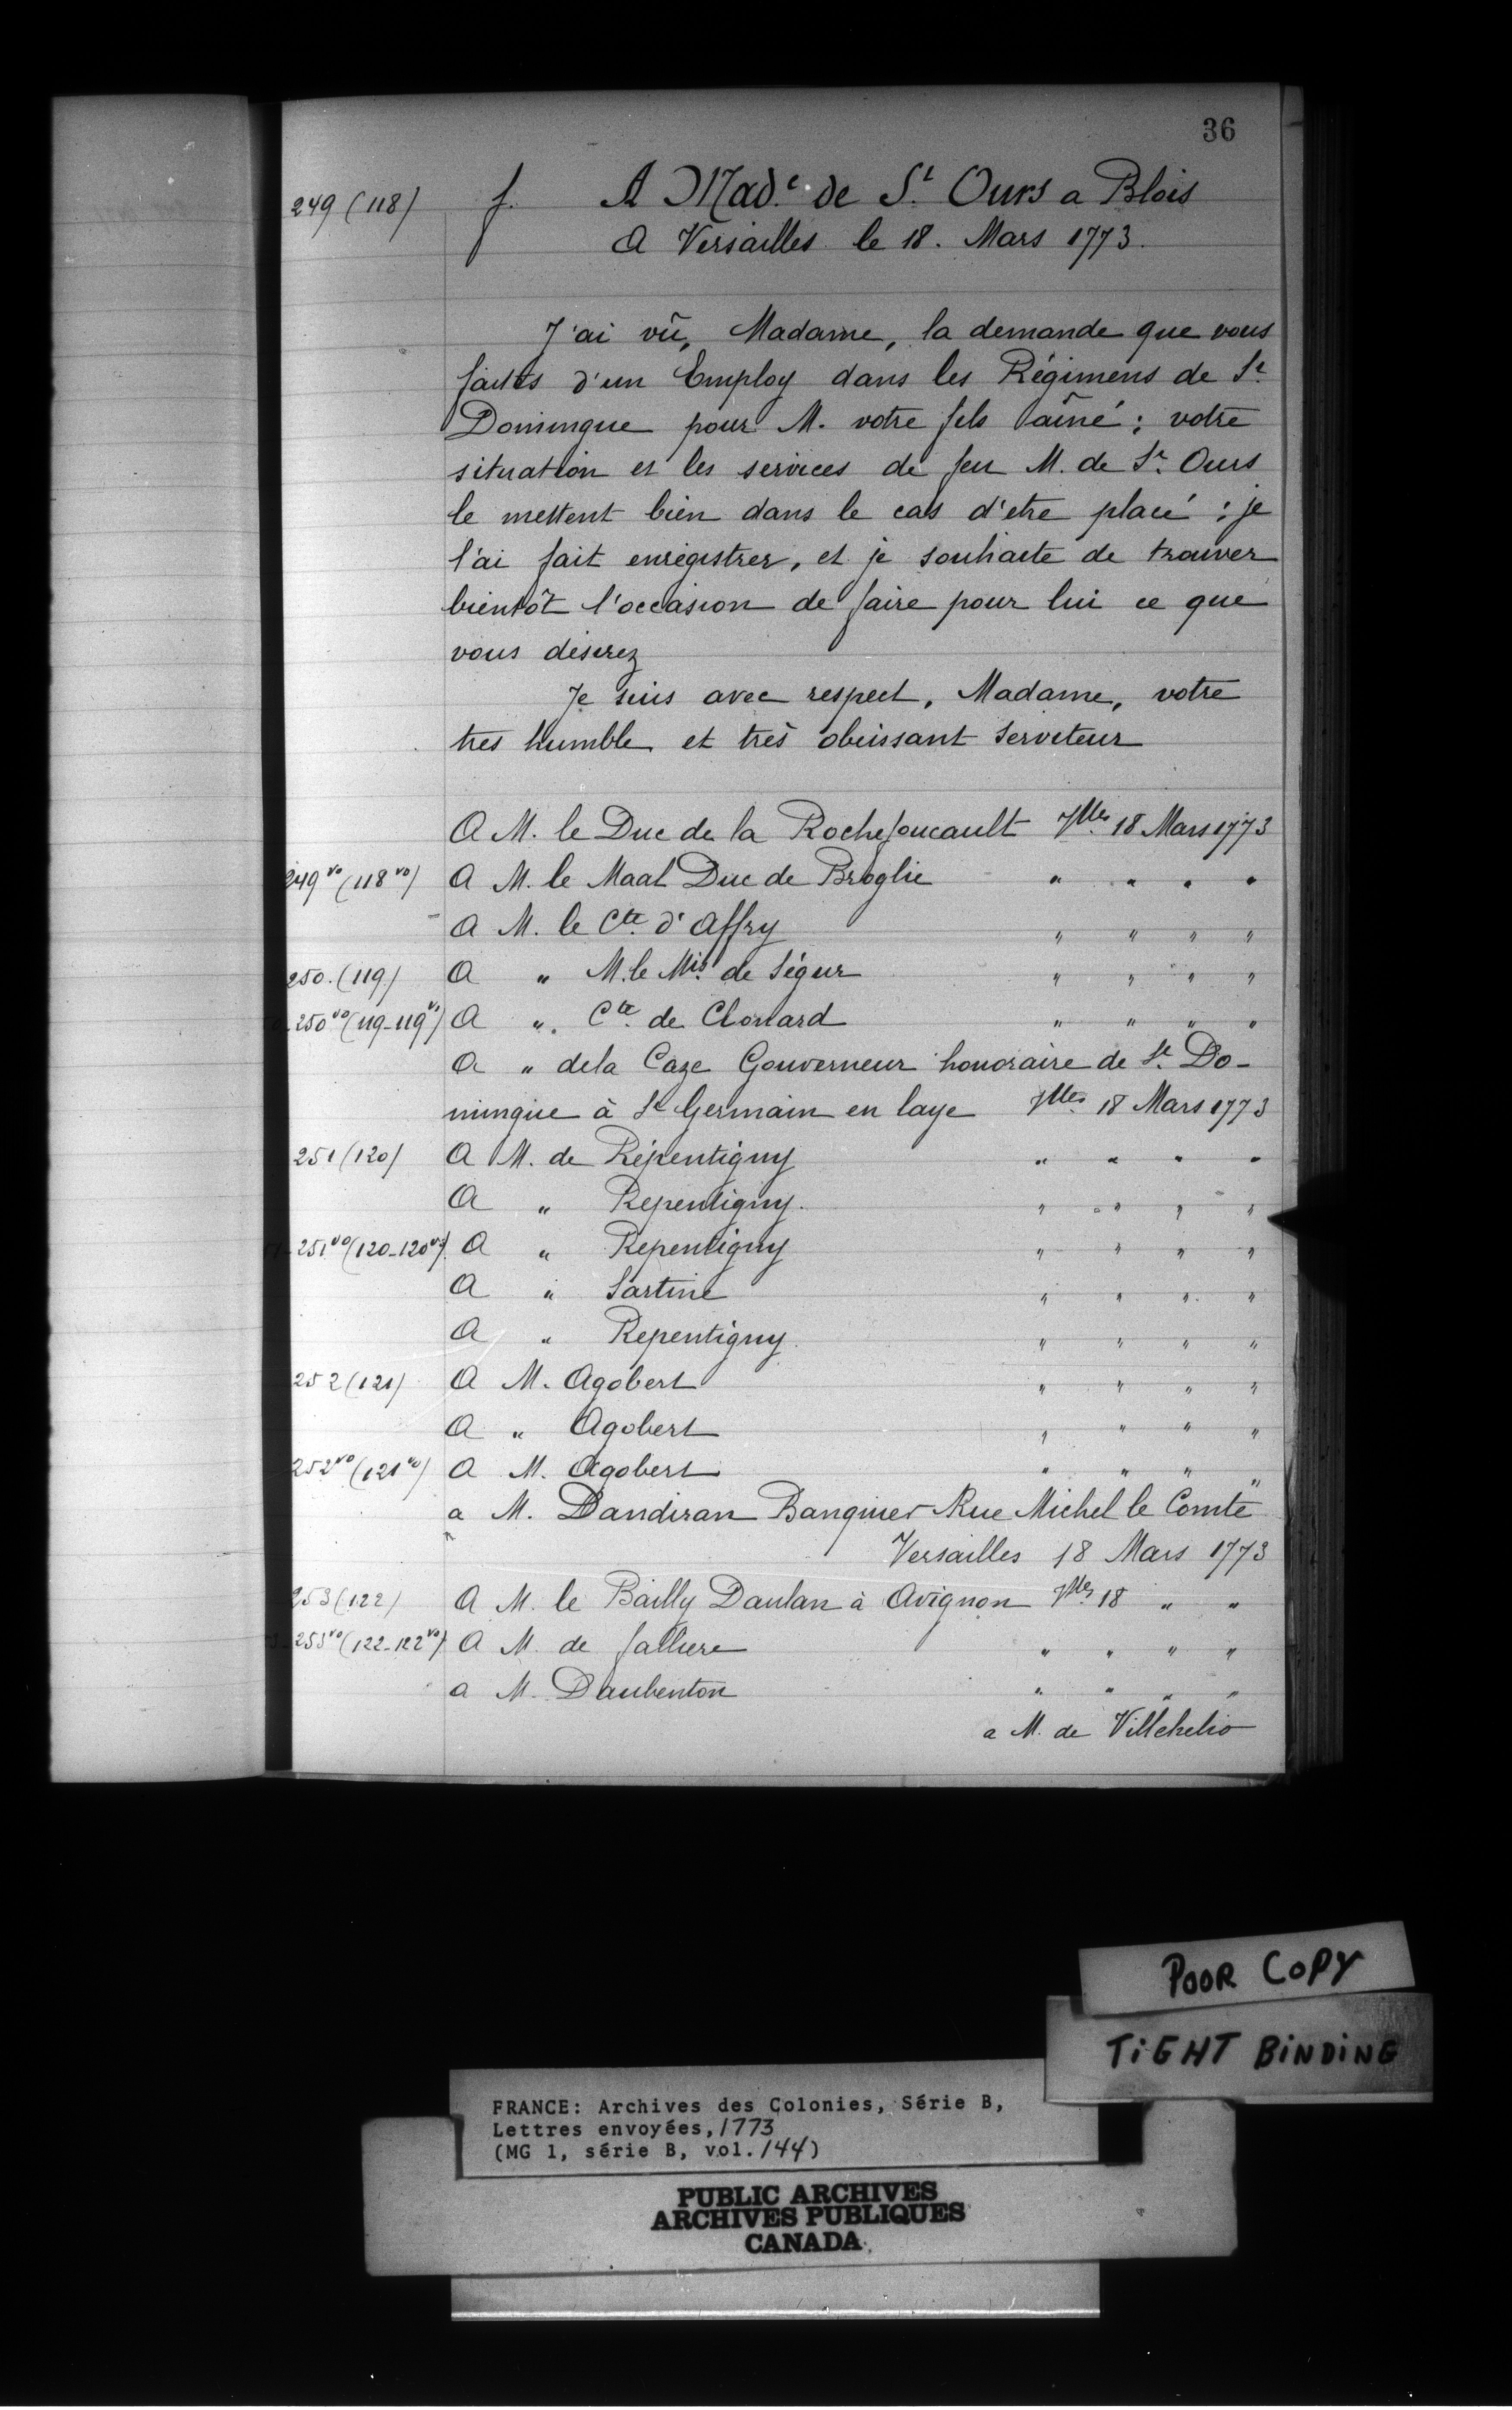 36
249 (118) f. A Mad.e de S.t Ours a Blois
A Versailles le 18. Mars 1773.
J'ai vû, Madame, la demande que vous
faites d'un Employ dans les Régimens de St
Domingue pour M. votre fils aîné : votre
situation et les services de feu M. de St. Ours
le mettent bien dans le cas d'etre placé : je
l'ai fait enregistrer, et je souhaite de trouver
bientôt l'occasion de faire pour lui ce que
vous désirez
Je suis avec respect, Madame, votre
tres humble et très obeissant Serviteur
A M. le Duc de la Rochefoucault Vlles 18 Mars 1773
249 vo (118 vo) A M. le Maal Duc de Broglie " " " "
A M. le Cte. d'Affry " " " "
250. (119) A " M. le Mis. de Ségur " " " "
250 vo (119-119 vo) A " Cte. de Clonard " " " "
A " dela Caze Gouverneur honoraire de St. Do-
mingue à St Germain en laye Vlles 18 Mars 1773
251 (120) A M. de Répentigny " " " "
A " Repentigny. " " " "
251 vo (120-120 vo) A " Repentigny " " " "
A " Sartine " " " "
A " Repentigny. " " " "
252 (121) A M. Agobert " " " "
A " Agobert " " " "
252 vo (121 vo) A M. Agobert " " " "
a M. Dandiran Banquier Rue Michel le Comte
Versailles 18 Mars 1773
253 (122) A M. le Bailly Daulan à Avignon Vlles 18 " "
253 vo (122-122 vo) A M. de " " " "
a M. Daubenton " " " "
a M. de Villehelio
POOR COPY
TIGHT BINDING
FRANCE: Archives des Colonies, Série B,
Lettres envoyées, 1773
(MG 1, série B, vol. 144)
PUBLIC ARCHIVES
ARCHIVES PUBLIQUES
CANADA